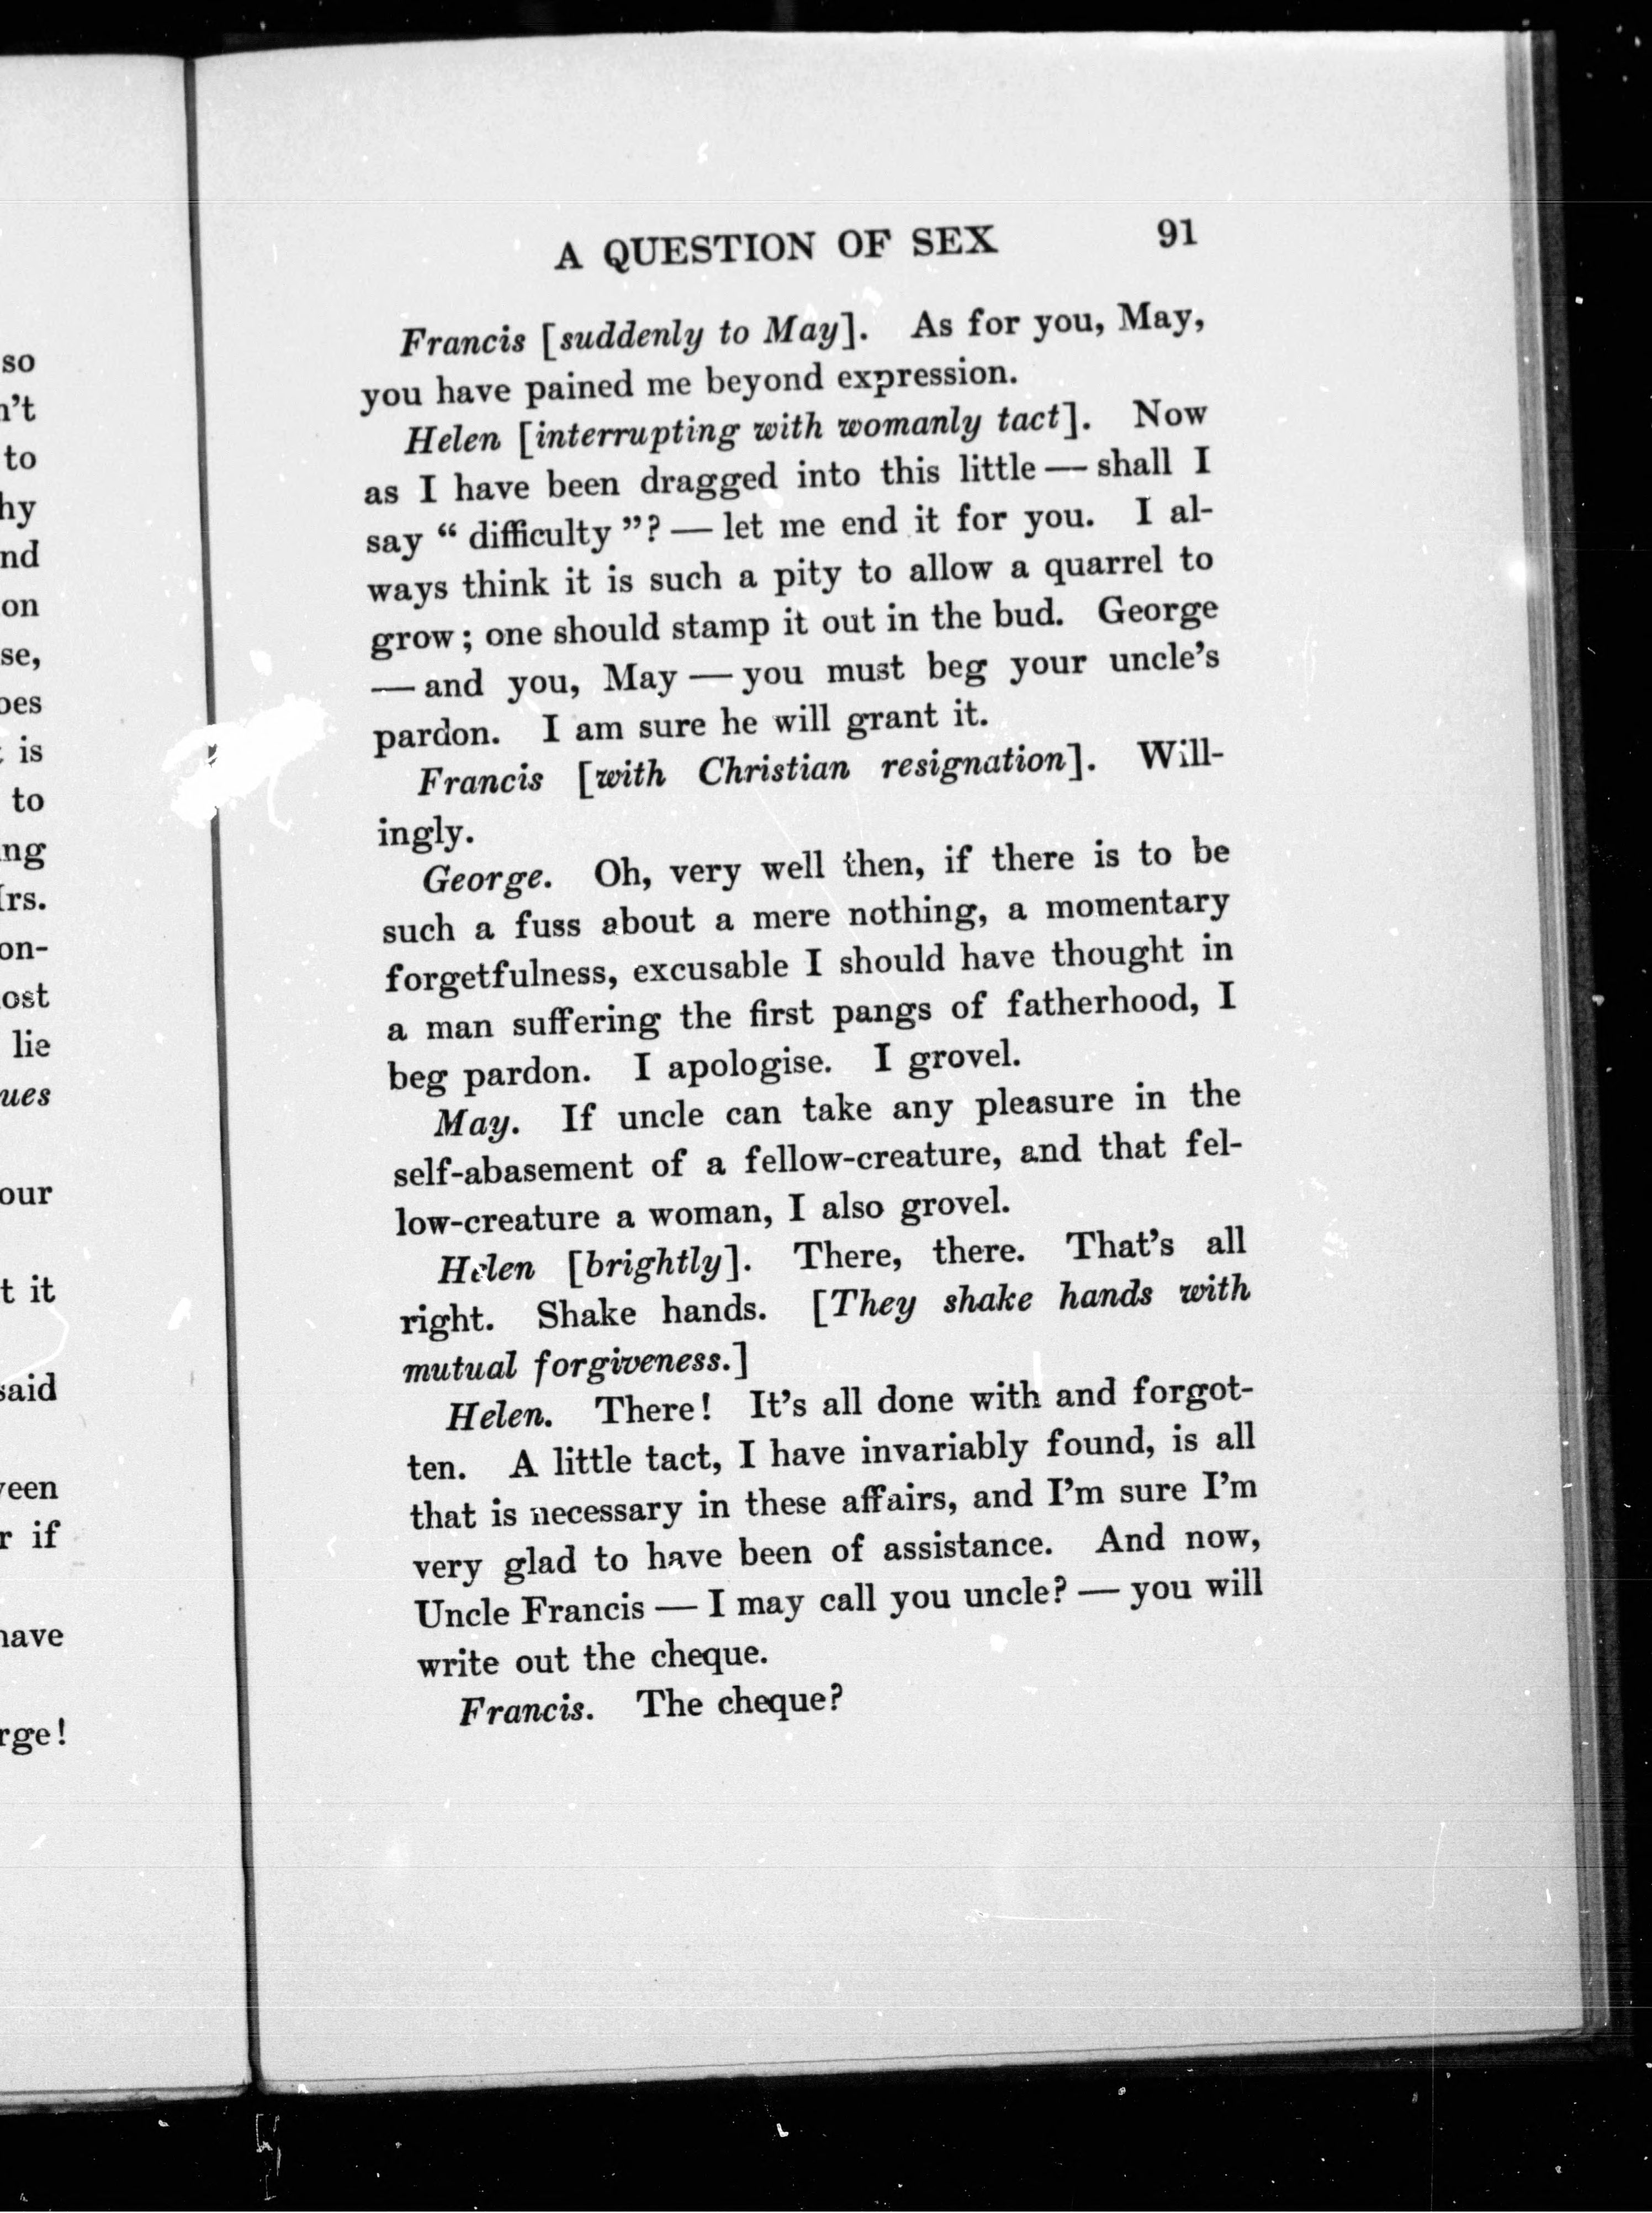 so
n't
to
hy
nd
on
se,
oes
is
to
ng
rs.
on-
ost
lie
ues
our
t it
said
een
r if
have
rge!
A QUESTION OF SEX 91
Francis [suddenly to May]. As for you, May,
you have pained me beyond expression.
Helen [interrupting with womanly tact]. Now
as I have been dragged into this little — shall I
say “ difficulty ”? — let me end it for you. I al-
ways think it is such a pity to allow a quarrel to
grow; one should stamp it out in the bud. George
— and you, May — you must beg your uncle's
pardon. I am sure he will grant it.
Francis [with Christian resignation]. Will-
ingly.
George. Oh, very well then, if there is to be
such a fuss about a mere nothing, a momentary
forgetfulness, excusable I should have thought in
a man suffering the first pangs of fatherhood, I
beg pardon. I apologise. I grovel.
May. If uncle can take any pleasure in the
self-abasement of a fellow-creature, and that fel-
low-creature a woman, I also grovel.
Helen [brightly]. There, there. That's all
right. Shake hands. [They shake hands with
mutual forgiveness.]
Helen. There! It's all done with and forgot-
ten. A little tact, I have invariably found, is all
that is necessary in these affairs, and I'm sure I'm
very glad to have been of assistance. And now,
Uncle Francis — I may call you uncle? — you will
write out the cheque.
Francis. The cheque?